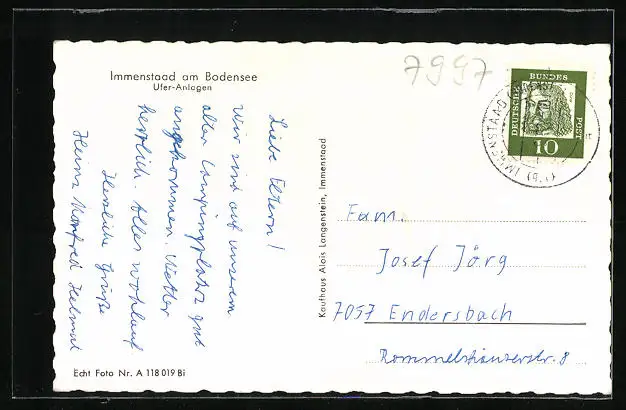 Immenstaad am Bodensee
Ufer-Anlagen
Liebe Eltern!
Wir sind auf unserem
alten Campingplatz gut
angekommen. Wetter
herrlich. Alles wohlauf
Herzliche Grüße
Heinz Manfred Helmut
Echt Foto Nr. A 118 019 Bi
Kaufhaus Alois Langenstein, Immenstaad
7997
DEUTSCHE
BUNDES
POST
10
IMMENSTAAD
Fam.
Josef Jörg
7057 Endersbach
Rommelshauserstr. 8